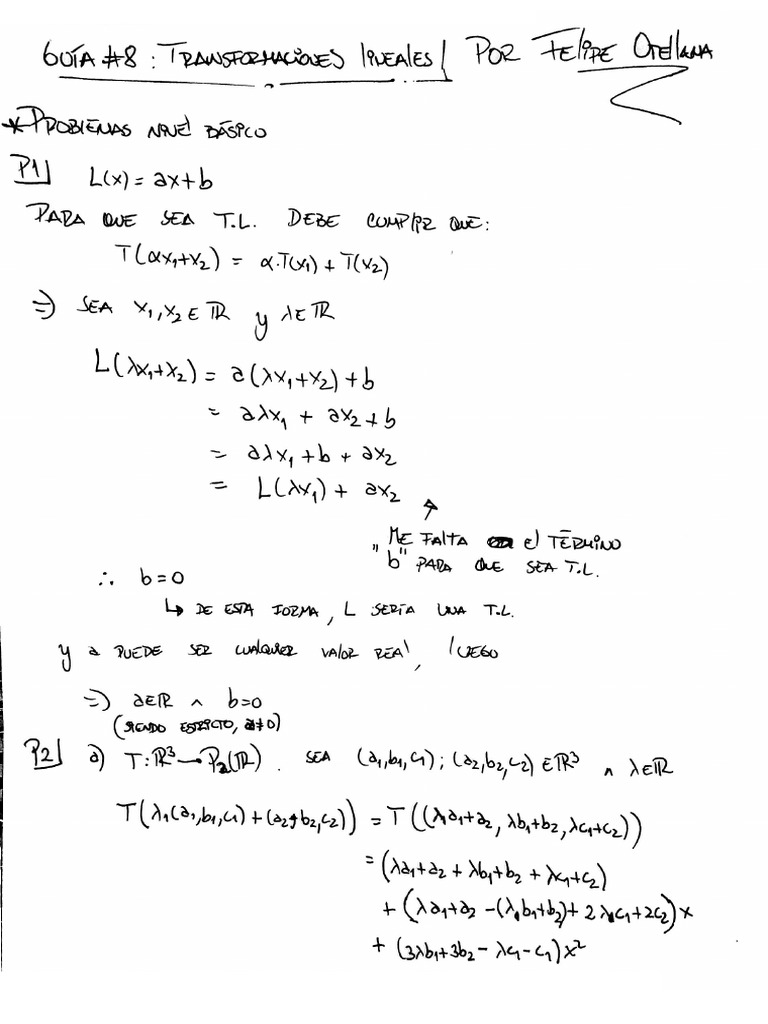 GUÍA #8 : TRANSFORMACIONES lINEALES | POR FELIPE ORELLANA
* PROBLEMAS NIVEL BÁSICO
P1| L(x) = ax+b
PARA QUE SEA T.L. DEBE CUMPLIR QUE:
T(αx₁+x₂) = α.T(x₁) + T(x₂)
⇒) SEA x₁,x₂ ∈ ℝ y λ∈ℝ
L(λx₁+x₂) = a(λx₁+x₂)+b
= aλx₁ + ax₂+b
= aλx₁+b + ax₂
= L(λx₁) + ax₂
"ME FALTA el TÉRMINO
b" PARA QUE SEA T.L.
∴ b=0
↳ DE ESTA FORMA, L SERÍA UNA T.L.
y a PUEDE SER CUALQUIER VALOR REAL, LUEGO
⇒) a∈ℝ ∧ b=0
(SIENDO ESTRICTO, a≠0)
P2| a) T:ℝ³→P₂(ℝ). SEA (a₁,b₁,c₁); (a₂,b₂,c₂) ∈ℝ³ ∧ λ∈ℝ
T(λ₁(a₁,b₁,c₁)+(a₂,b₂,c₂)) = T((λa₁+a₂, λb₁+b₂, λc₁+c₂))
= (λa₁+a₂ + λb₁+b₂ + λc₁+c₂)
+ (λa₁+a₂ -(λb₁+b₂)+ 2λc₁+2c₂)x
+ (3λb₁+3b₂ - λc₁ - c₁)x²